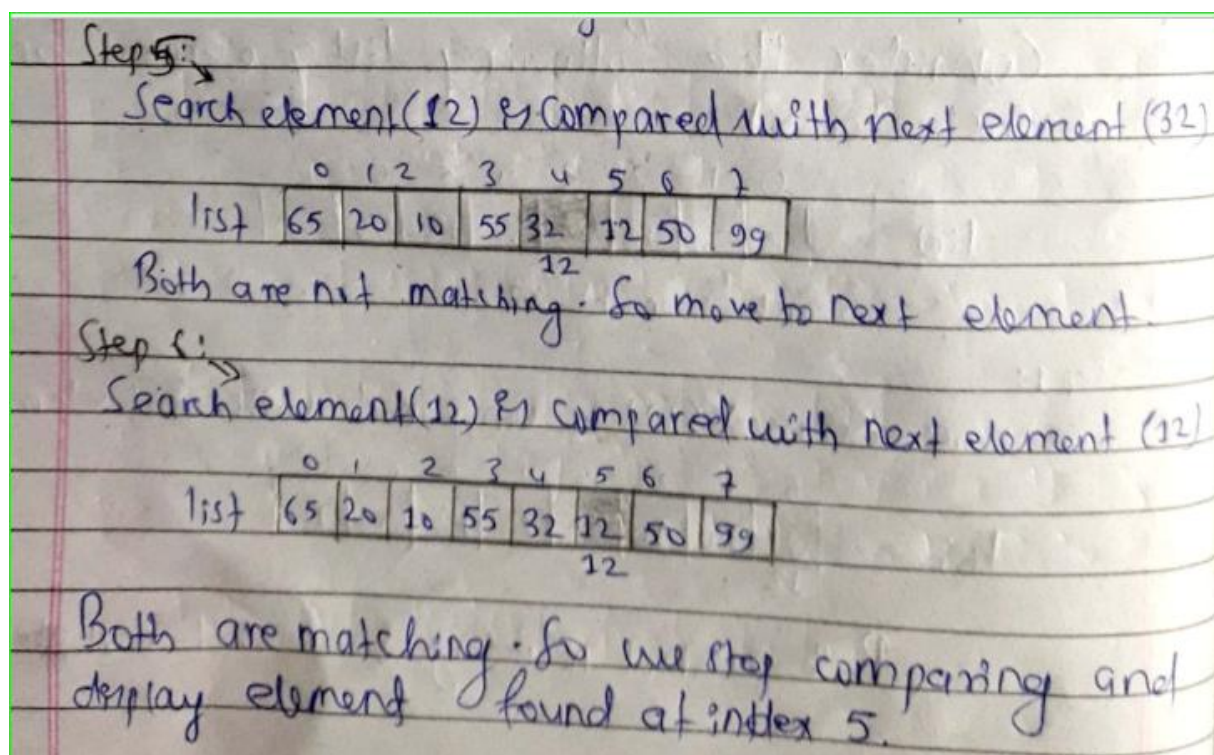 Step 5:
Search element(12) is compared with next element (32)
0 1 2 3 4 5 6 7
list 65 20 10 55 32 12 50 99
12
Both are not matching. So move to next element.
Step 6:
Search element(12) is compared with next element (12)
0 1 2 3 4 5 6 7
list 65 20 10 55 32 12 50 99
12
Both are matching. So we stop comparing and
display element found at index 5.